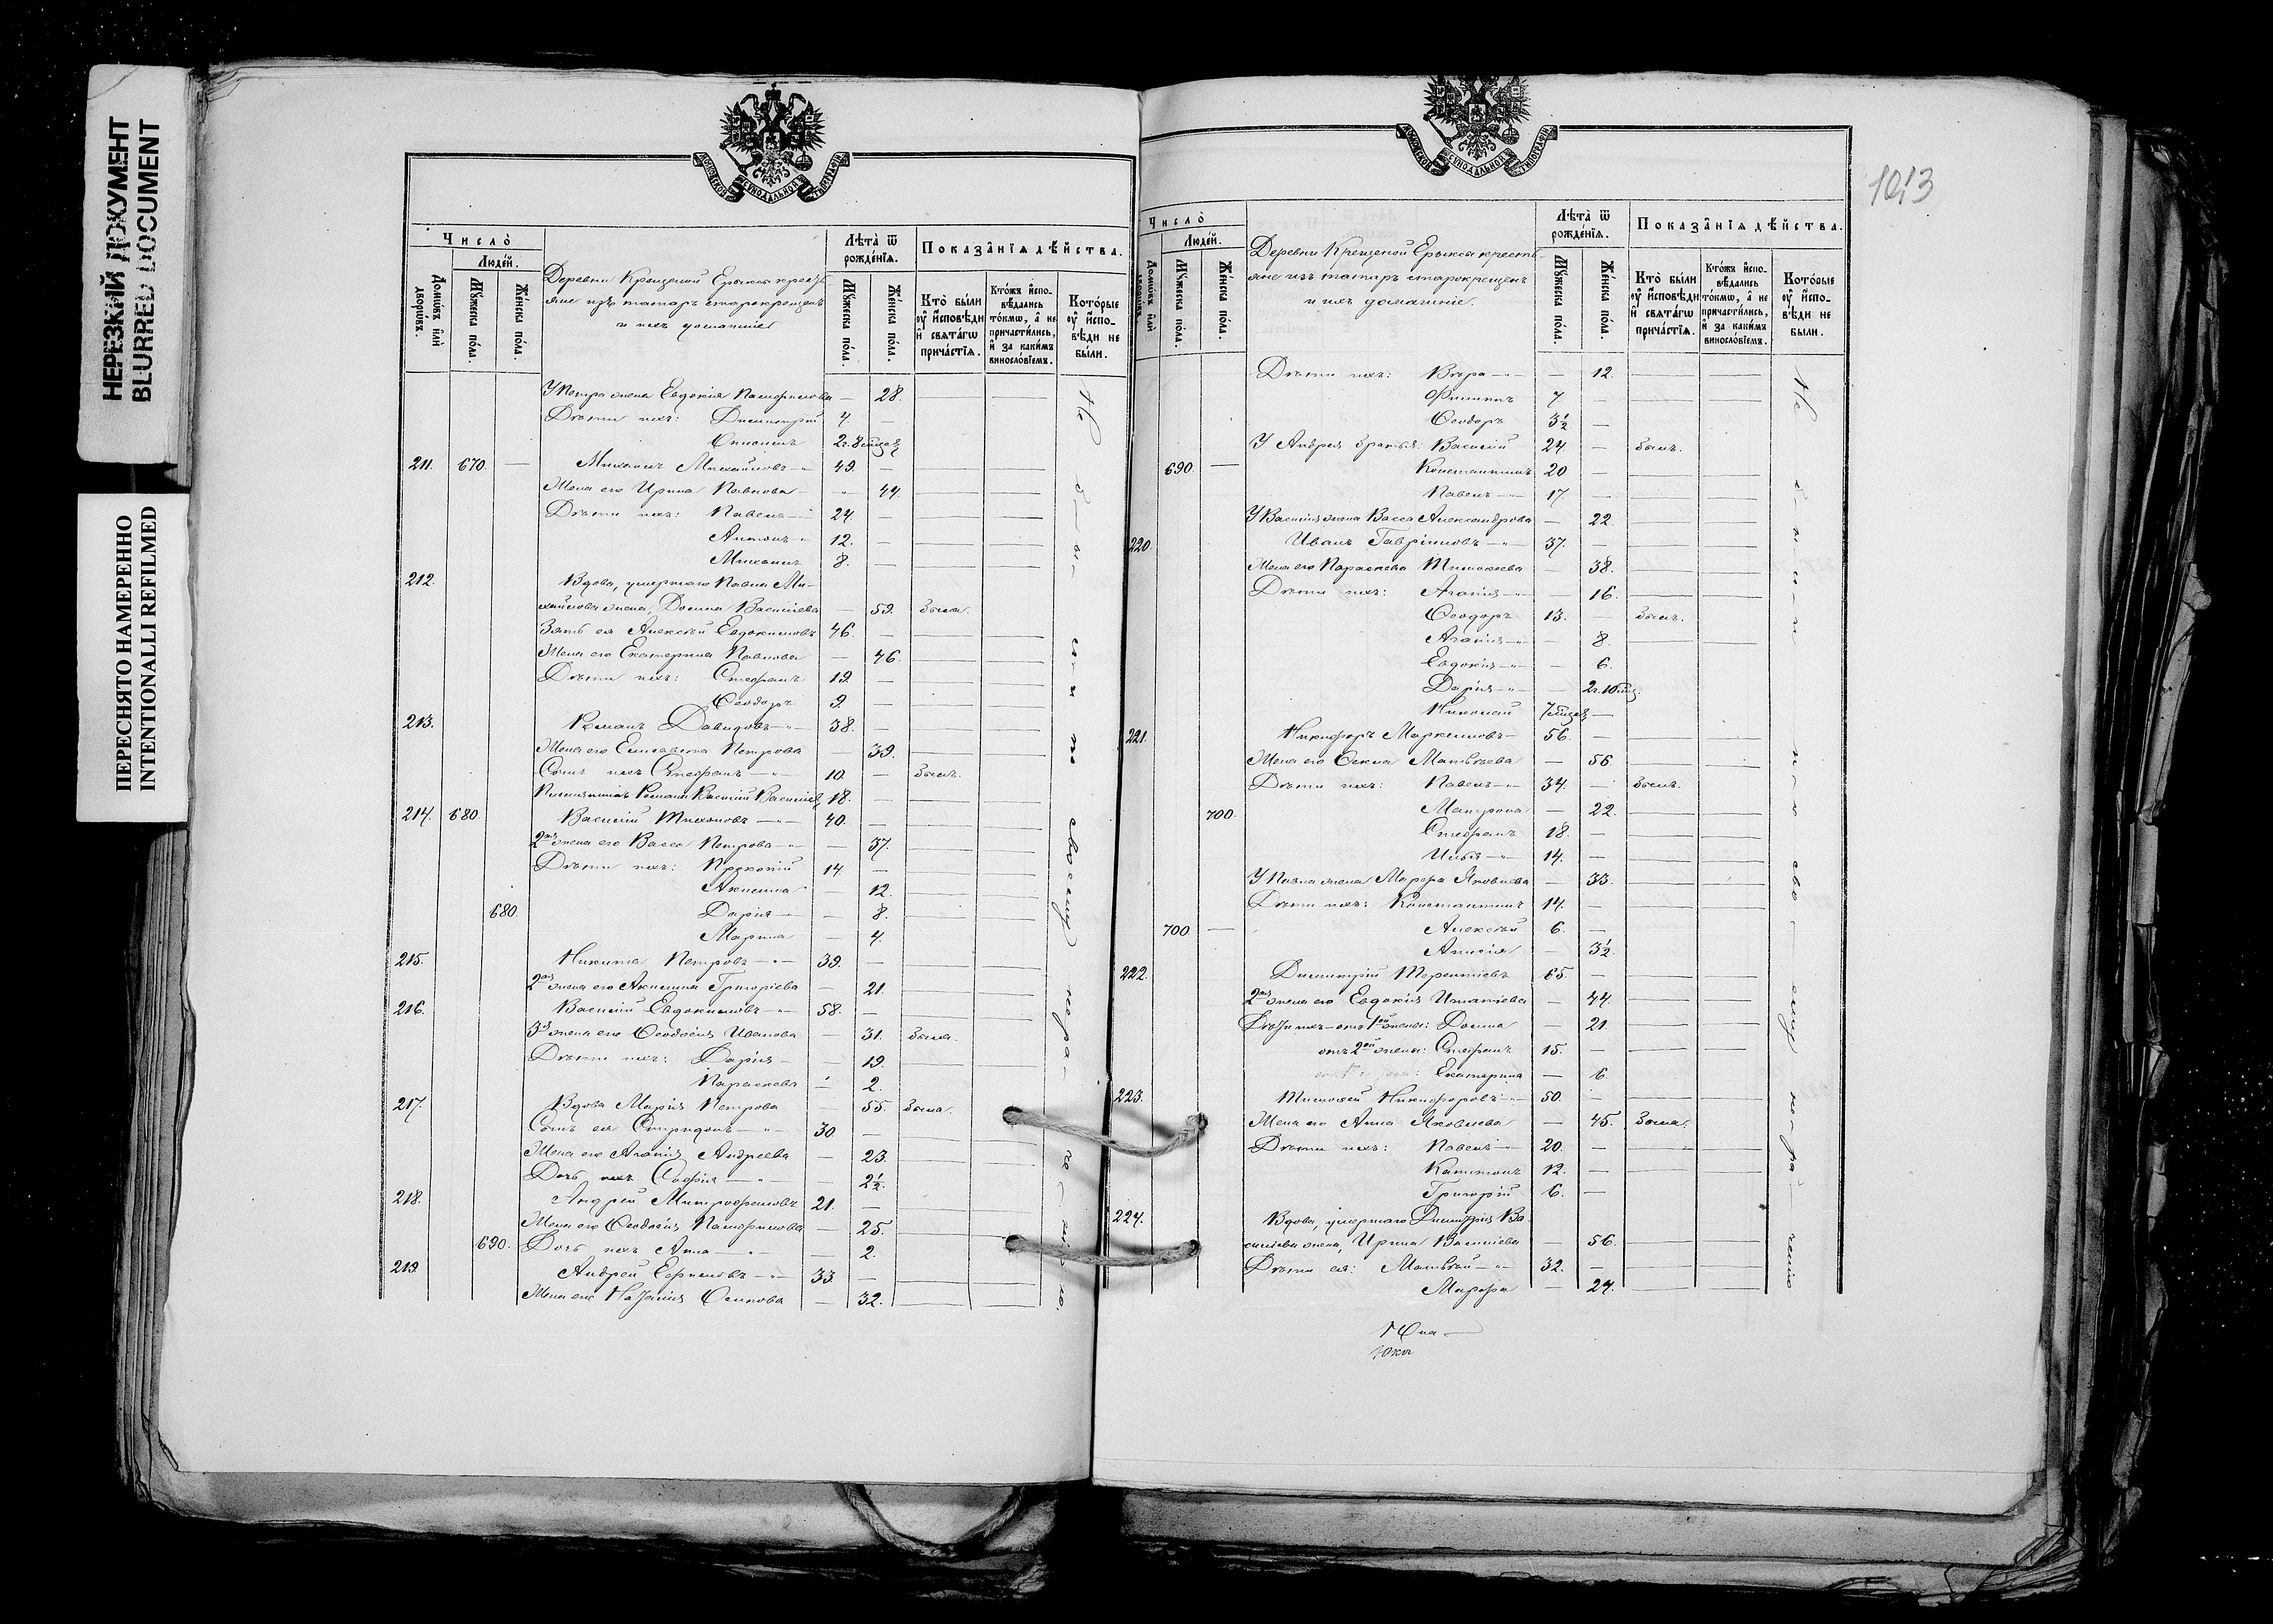 НЕРЕЗКИЙ ДОКУМЕНТ
BLURRED DOCUMENT
ПЕРЕСНЯТО НАМЕРЕННО
INTENTIONALLI REFILMED
МОСКОВСКОЙ СѴНОДАЛЬНОЙ ТИПОГРАФІИ
Число̀
Людей.
Домѡвъ или дворѡвъ.
Мꙋжеска пола.
Женска пола.
Деревни Крещеной Ерыксы кресть-
яне изъ татаръ старокрещенъ
и ихъ домашніе
Лѣта̀ ѿ рожденїѧ.
Мꙋжеска пола.
Женска пола.
Показанїѧ дѣйства.
Кто̀ были оу исповѣди и свѧтагѡ причастїѧ.
Ктожъ исповѣдались токмѡ, а не причастились, и за какимъ винословїемъ.
Которые оу исповѣди не были.
У Петра жена Евдокія Памфилова — 28.
Дѣти ихъ: Димитрій 4. —
Онисимъ 2г. 8 мцев
211. 670. — Михаилъ Михайловъ 49. —
Жена его Ирина Павлова 44.
Дѣти ихъ: Павелъ 24. —
Антонъ 12. —
Михаилъ 8. —
212. Вдова, умершаго Павла Ми-
хайлова жена, Домна Васильева — 59. была.
Зять ея Алексѣй Евдокимовъ 46. —
Жена его Екатерина Павлова — 46.
Дѣти ихъ: Стефанъ 19. —
Ѳеодоръ 9. —
213. Романъ Давидовъ 38. —
Жена его Елисавета Петрова — 39.
Сынъ ихъ Стефанъ 10. — былъ.
Племянникъ Романа Василій Васильев 18. —
214. 680. Василій Тихоновъ 40. —
2ая жена его Васса Петрова — 37.
Дѣти ихъ: Прокопій 14. —
Акилина — 12.
680. Дарія — 8.
Марина — 4.
215. Никита Петровъ 39. —
2ая жена его Акилина Григоріева — 21.
216. Василій Евдокимовъ 58. —
3я жена его Ѳеодосія Иванова — 31. была.
Дѣти ихъ: Дарія — 19.
Параскева — 2.
217. Вдова Марія Петрова — 55. была.
Сынъ ея Спиридонъ 30 —
Жена его Агапія Андреева — 23.
Дочь ихъ Софія — 2½.
218. Андрей Митрофановъ 21. —
Жена его Ѳеодосія Памфилова — 25.
690. Дочь ихъ Анна — 2.
219. Андрей Ефимовъ 33. —
Жена его Наталія Осипова — 32.
Не были по своему нераченію.
1013
МОСКОВСКОЙ СѴНОДАЛЬНОЙ ТИПОГРАФІИ
Число̀
Людей.
Домѡвъ или дворѡвъ.
Мꙋжеска пола.
Женска пола.
Деревни Крещеной Ерыксы кресть-
яне изъ татаръ старокрещенъ
и ихъ домашніе.
Лѣта̀ ѿ рожденїѧ.
Мꙋжеска пола.
Женска пола.
Показанїѧ дѣйства.
Кто̀ были оу исповѣди и свѧтагѡ причастїѧ.
Ктожъ исповѣдались токмѡ, а не причастились, и за какимъ винословїемъ.
Которые оу исповѣди не были.
Дѣти ихъ: Вѣра — 12.
Филиппъ 7 —
Ѳеодоръ 3½ —
У Андрея братья: Василій 24. — былъ.
690. — Константинъ 20 —
Павелъ 17. —
У Василія жена Васса Александрова — 22.
220. Иванъ Гавріиловъ 37. —
Жена его Параскева Тимоѳеева — 38.
Дѣти ихъ: Агапія — 16.
Ѳеодоръ 13. — былъ.
Агапія — 8.
Евдокія — 6.
Дарія — 2г. 10 мц.
Николай 7 мцев —
221. Никифоръ Маркелловъ 56. —
Жена его Ѳекла Матвѣева — 56.
Дѣти ихъ: Павелъ 34. — былъ.
700. Матрона — 22.
Стефанъ 18. —
Илья 14. —
У Павла жена Марфа Яковлева — 33.
Дѣти ихъ: Константинъ 14. —
700 — Алексѣй 6. —
Анисія — 3½.
222. Димитрій Терентіевъ 65. —
2ая жена его Евдокія Игнатіева — 44.
Дѣти ихъ отъ 1ой жены: Домна — 21.
отъ 2ой жены: Стефанъ 15. —
Екатерина — 6.
223. Тимоѳей Никифоровъ 50. —
Жена его Анна Яковлева — 45. была.
Дѣти ихъ: Павелъ 20. —
Капитонъ 12. —
Григорій 6. —
224. Вдова, умершаго Димитрія Ва-
сильева жена, Ирина Васильева — 56.
Дѣти ея: Матвѣй 32. —
Марфа — 24.
Не были по своему нераченію